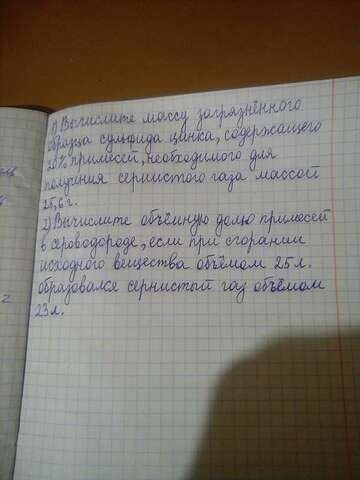 1) Вычислите массу загрязнённого
образца сульфида цинка, содержащего
20% примесей, необходимого для
получения сернистого газа массой
25,6 г.
2) Вычислите объёмную долю примесей
в сероводороде, если при сгорании
исходного вещества объёмом 25 л.
образовался сернистый газ объёмом
23 л.